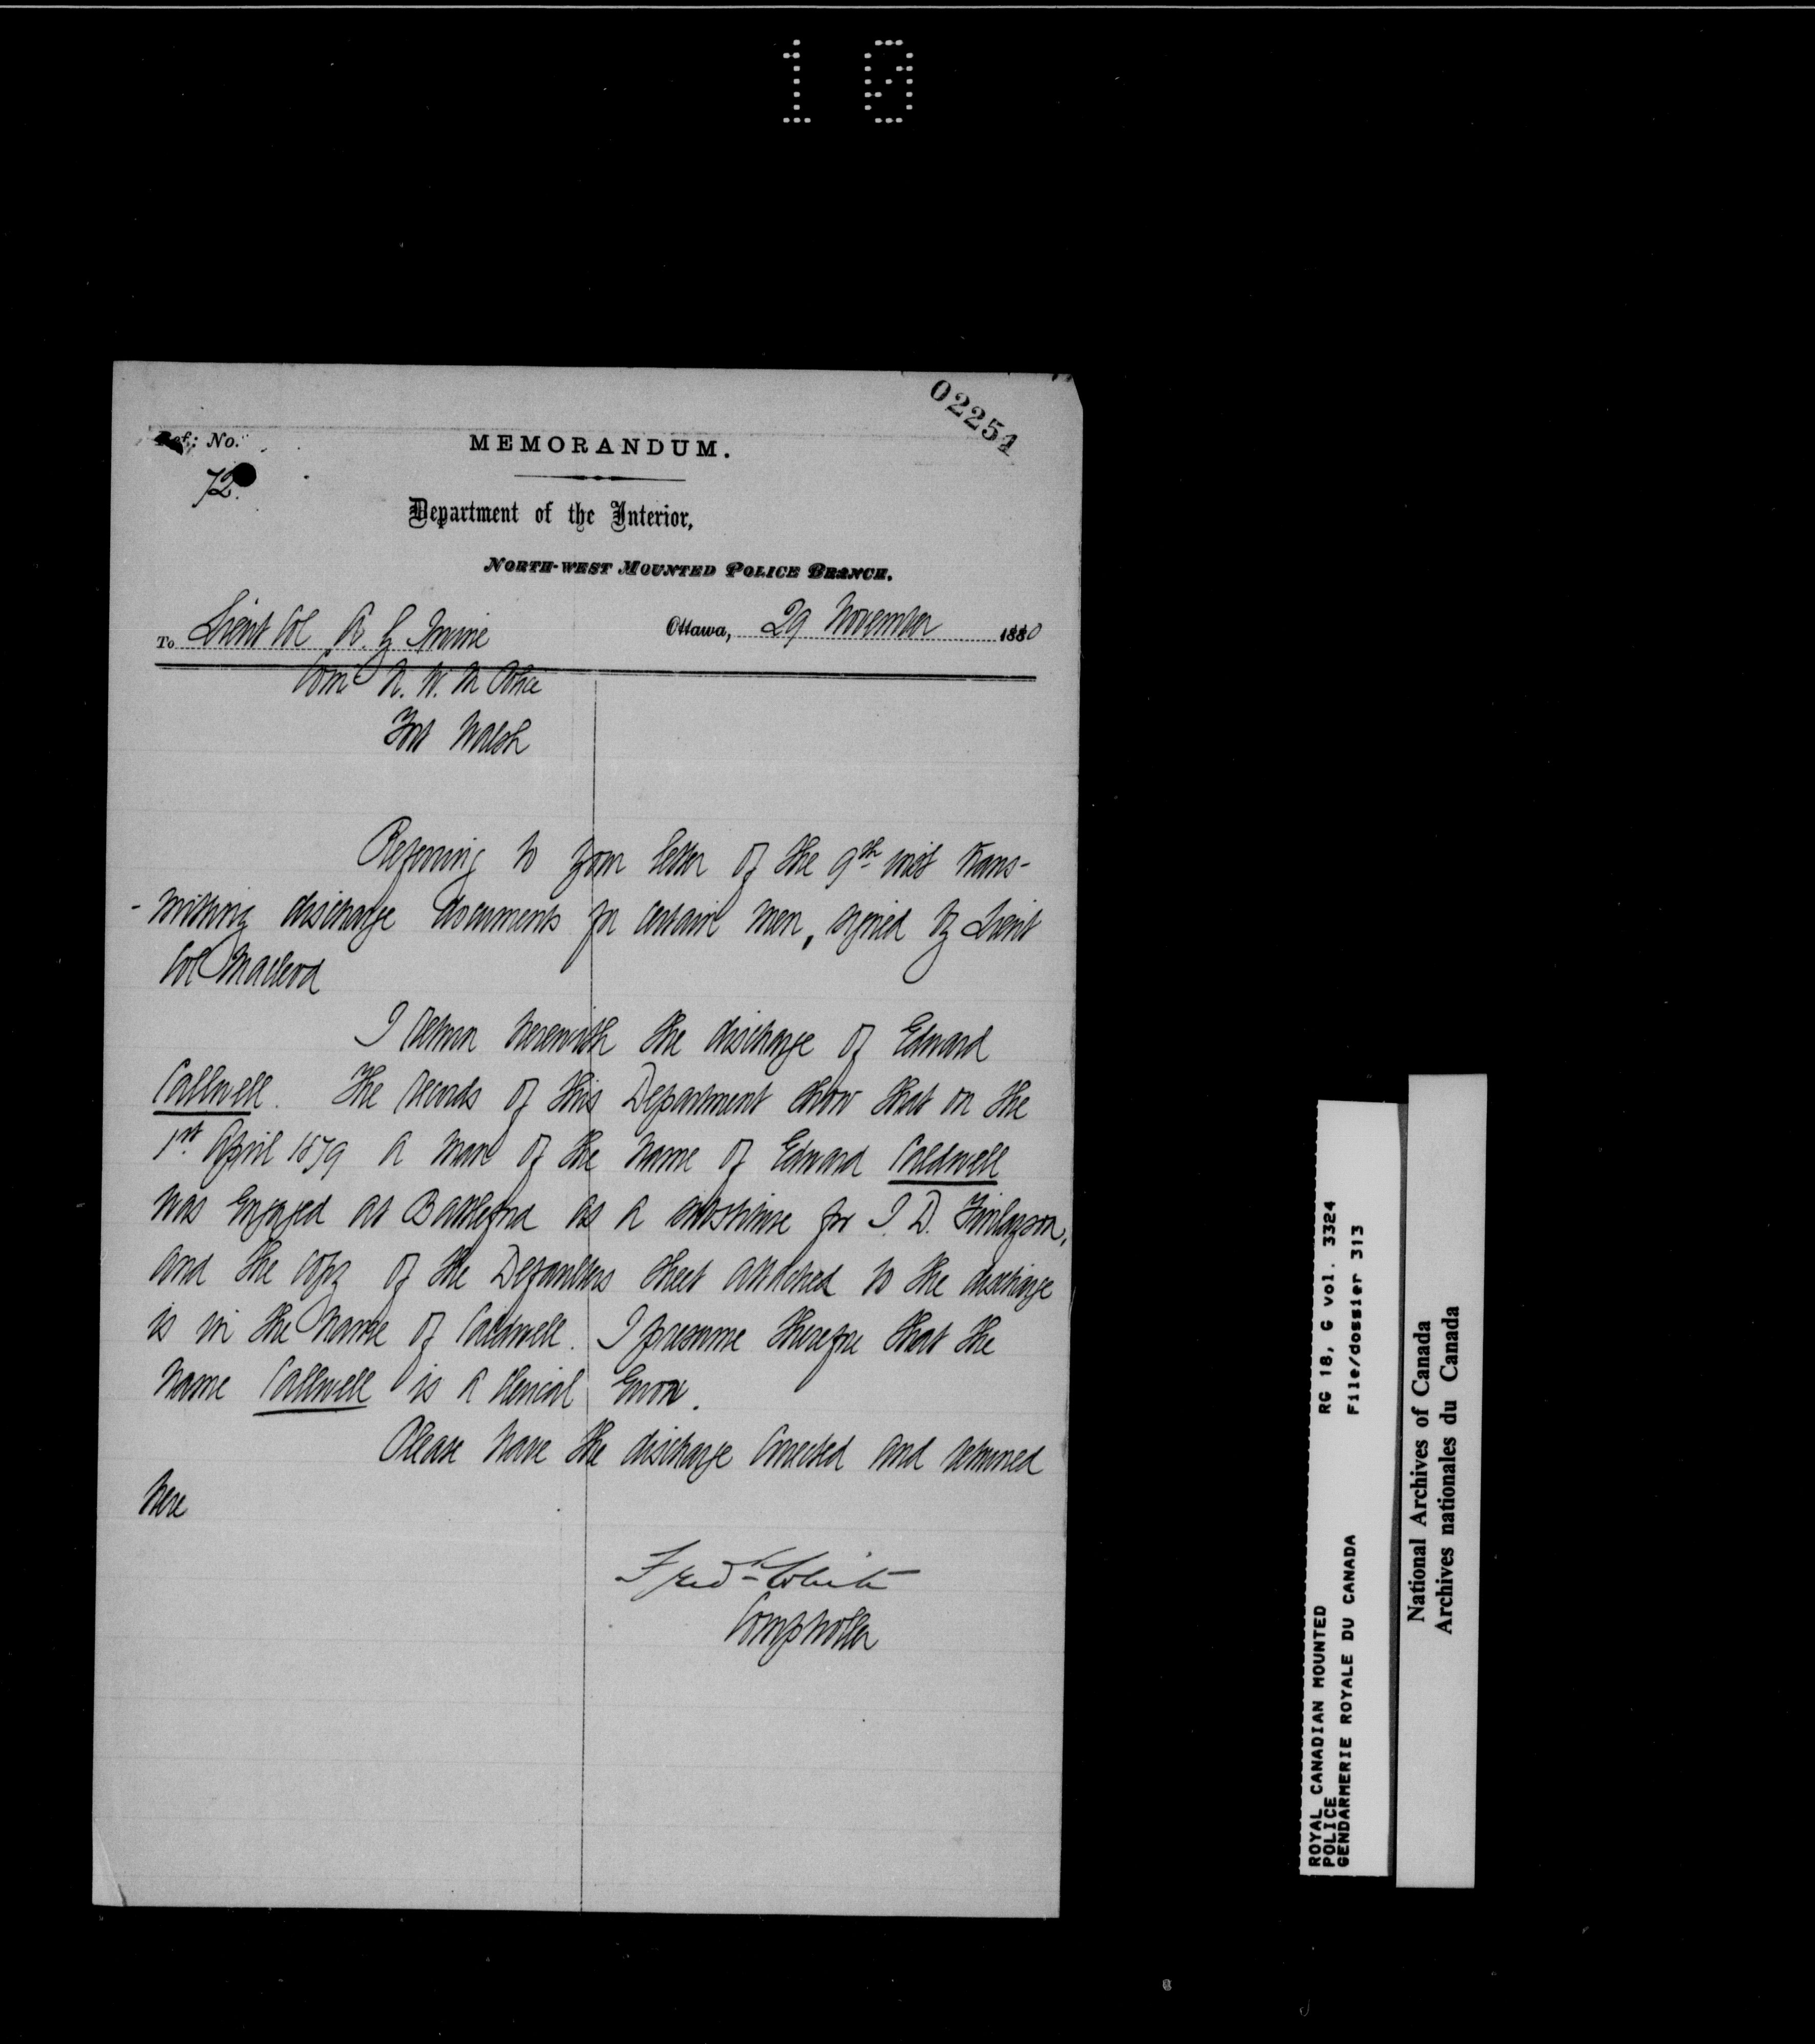 10
02251
Ref: No.
72.
MEMORANDUM.
Department of the Interior,
NORTH-WEST MOUNTED POLICE BRANCH.
To Lieut Col A. G. Irvine
Ottawa, 29 November 1880
Com<sup>r</sup> N. W. M Police
Fort Walsh
Referring to your letter of the 9th inst trans-
-mitting discharge documents for certain men, signed by Lieut
Col Macleod
I return herewith the discharge of Edward
Callwell. The records of this Department show that on the
1st. April 1879 a man of the name of Edward Caldwell
was engaged at Battleford as a substitute for J. D. Finlayson,
and the copy of the Defaulters sheet attached to the discharge
is in the name of Caldwell. I presume therefore that the
name Callwell is a clerical error.
Please have the discharge corrected and returned
here
Fred White
Comptroller
ROYAL CANADIAN MOUNTED
POLICE
GENDARMERIE ROYALE DU CANADA
RG 18, G vol. 3324
File/dossier 313
National Archives of Canada
Archives nationales du Canada